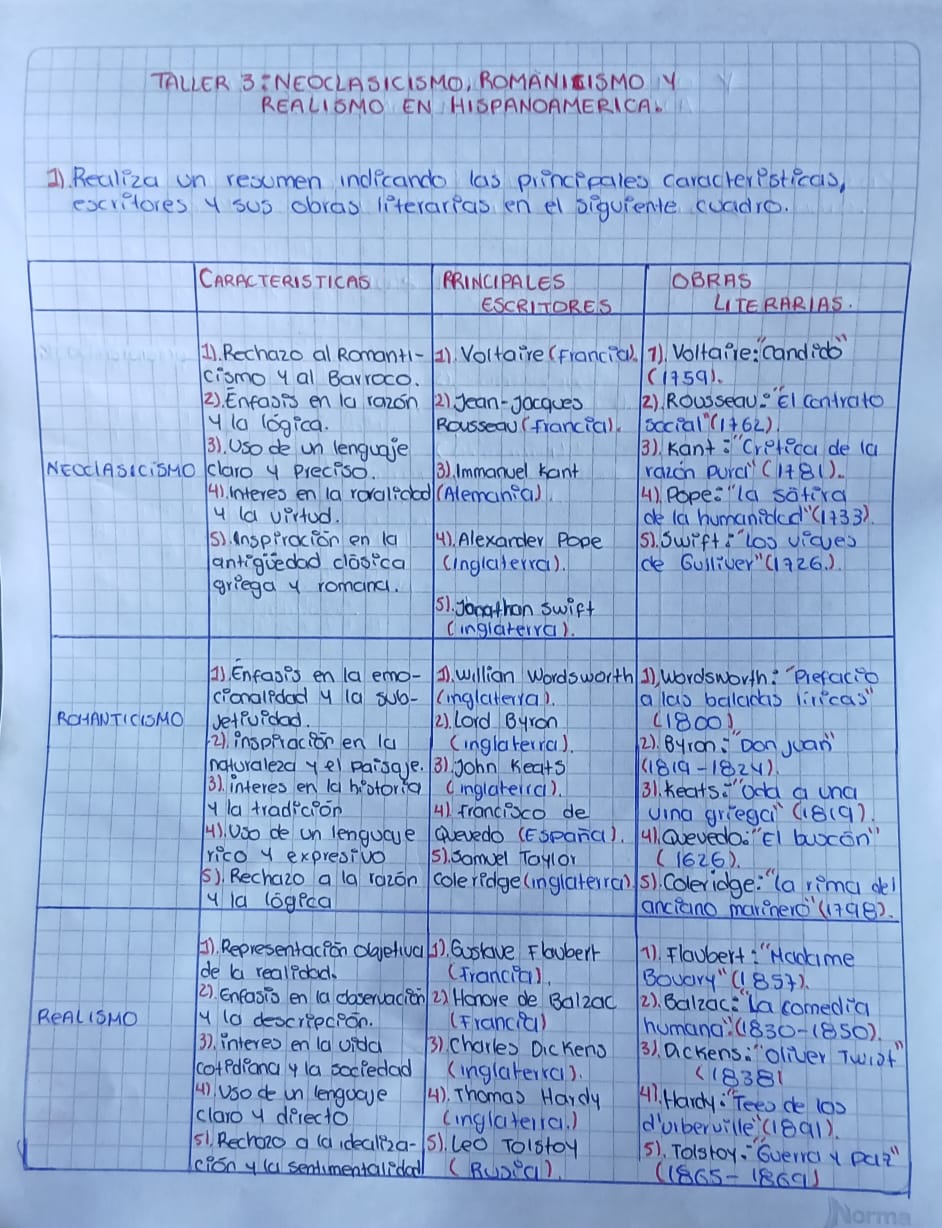 TALLER 3: NEOCLASICISMO, ROMANICISMO Y
REALISMO EN HISPANOAMERICA.
1). Realiza un resumen indicando las principales caracteristicas,
escritores y sus obras literarias en el siguiente cuadro.
CARACTERISTICAS
PRINCIPALES
ESCRITORES
OBRAS
LITERARIAS.
NEOCLASICISMO
1). Rechazo al Romanti-
cismo y al Barroco.
2). Enfasis en la razón
y la lógica.
3). Uso de un lenguaje
claro y preciso.
4). interes en la roralidad
y la virtud.
5). inspiración en la
antigüedad clásica
griega y romana.
1). Voltaire (Francia).
2). Jean-Jacques
Rousseau (francia).
3). Immanuel Kant
(Alemania).
4). Alexander Pope
(inglaterra).
5). Jonathan swift
(inglaterra).
1). Voltaire: "candido"
(1759).
2). Rousseau: "El contrato
social" (1762).
3). Kant: "Crítica de la
razón pura" (1781).
4). Pope: "la sátira
de la humanidad" (1733).
5). Swift: "los viajes
de Gulliver" (1726.).
ROMANTICISMO
1). Enfasis en la emo-
cionalidad y la sub-
jetividad.
2). inspiración en la
naturaleza y el paisaje.
3). interes en la historia
y la tradición
4). Uso de un lenguaje
rico y expresivo
5). Rechazo a la razón
y la lógica
1). willian Wordsworth
(inglaterra).
2). Lord Byron
(inglaterra).
3). John Keats
(inglaterra).
4). francisco de
Quevedo (España).
5). Samuel Taylor
coleridge (inglaterra).
1). Wordsworth: "Prefacio
a las baladas líricas"
(1800)
2). Byron: "Don Juan"
(1819-1824).
3). Keats: "Oda a una
urna griega" (1819).
4). Quevedo: "El buscón"
(1626).
5). Coleridge: "la rima del
anciano marinero" (1798).
REALISMO
1). Representación objetiva
de la realidad.
2). Enfasis en la observación
y la descripción.
3). interes en la vida
cotidiana y la sociedad
4). Uso de un lenguaje
claro y directo
5). Rechazo a la idealiza-
ción y la sentimentalidad
1). Gustave Flaubert
(Francia).
2). Honore de Balzac
(Francia)
3). Charles Dickens
(inglaterra).
4). Thomas Hardy
(inglaterra.)
5). Leo Tolstoy
(Rusia).
1). Flaubert: "Madame
Bovary" (1857).
2). Balzac: "la comedia
humana". (1830-1850).
3). Dickens: "Oliver Twist"
(1838)
4). Hardy: "Tees de los
d'urberville" (1891).
5). Tolstoy: "Guerra y paz"
(1865-1869)
Norma